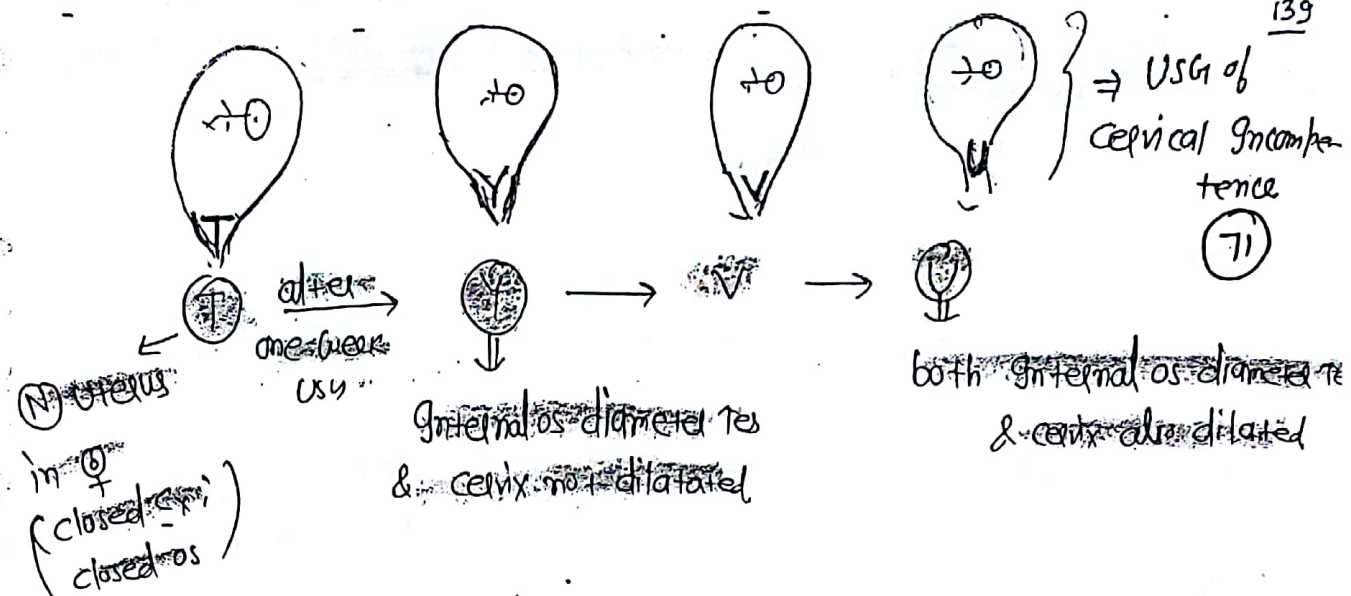 139
⇒ USG of
Cervical Incompe-
tence
71
T
after
one week
USG
Y
V
U
(N) uterus
in
(closed Cx;
closed os)
Internal os diameter ↑es
& cervix not dilatated
both Internal os diameter ↑
& cervix also dilated